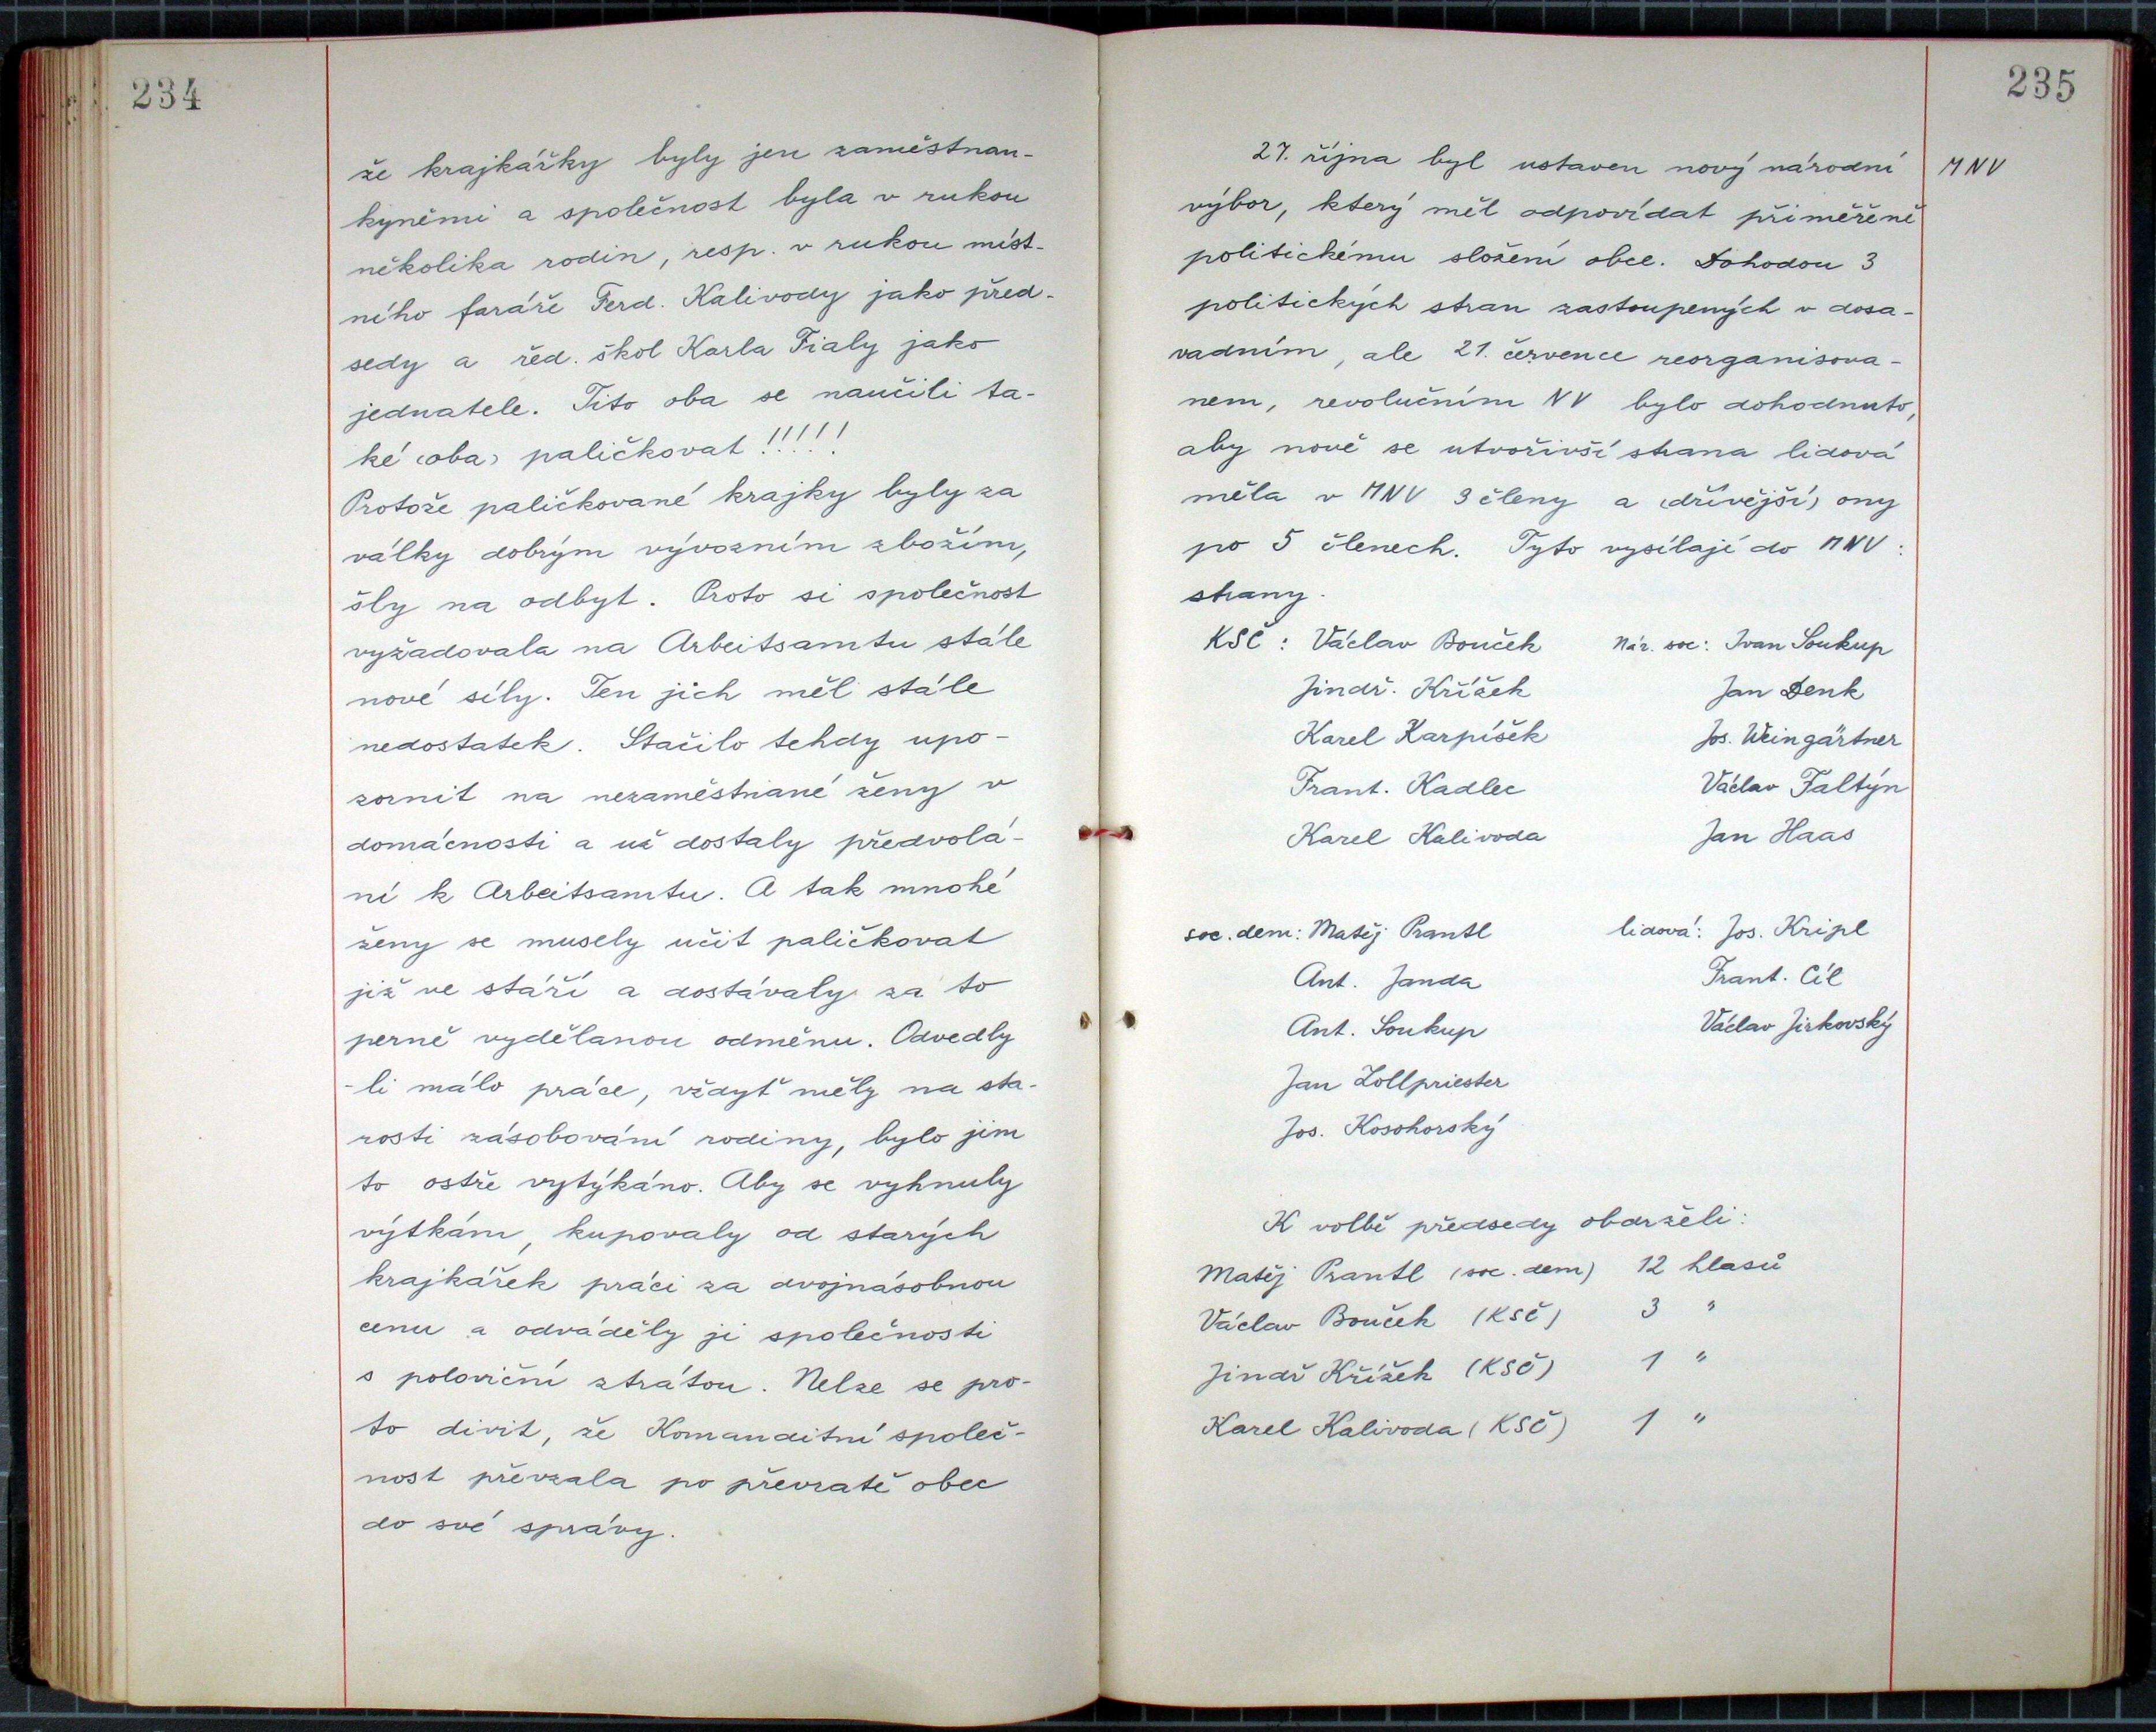 234
že krajkářky byly jen zaměstnan-
kyněmi a společnost byla v rukou
několika rodin, resp. v rukou míst-
ního faráře Ferd. Kalivody jako před-
sedy a řed. škol Karla Fialy jako
jednatele. Tito oba se naučili ta-
ké (oba) paličkovat !!!!!
Protože paličkované krajky byly za
války dobrým vývozním zbožím,
šly na odbyt. Proto si společnost
vyžadovala na Arbeitsamtu stále
nové síly. Ten jich měl stále
nedostatek. Stačilo tehdy upo-
zornit na nezaměstnané ženy v
domácnosti a už dostaly předvolá-
ní k Arbeitsamtu. A tak mnohé
ženy se musely učit paličkovat
již ve stáří a dostávaly za to
perně vydělanou odměnu. Odvedly
-li málo práce, vždyť měly na sta-
rosti zásobování rodiny, bylo jim
to ostře vytýkáno. Aby se vyhnuly
výtkám, kupovaly od starých
krajkářek práci za dvojnásobnou
cenu a odváděly ji společnosti
s poloviční ztrátou. Nelze se pro-
to divit, že Komanditní společ-
nost převzala po převratě obec
do své správy.
235
MNV
27. října byl ustaven nový národní
výbor, který měl odpovídat přiměřeně
politickému složení obce. Dohodou 3
politických stran zastoupených v dosa-
vadním, ale 21. července reorganisova-
nem, revolučním NV bylo dohodnuto,
aby nově se utvořivší strana lidová
měla v MNV 3 členy a (dřívější) ony
po 5 členech. Tyto vysílají do MNV:
strany.
KSČ: Václav Bouček Nár. soc: Ivan Soukup
Jindř. Křížek Jan Denk
Karel Karpíšek Jos. Weingärtner
Frant. Kadlec Václav Faltýn
Karel Kalivoda Jan Haas
soc. dem: Matěj Prantl lidová: Jos. Kripl
Ant. Janda Frant. Cíl
Ant. Soukup Václav Jirkovský
Jan Zollpriester
Jos. Kosohorský
K volbě předsedy obdrželi:
Matěj Prantl (soc. dem) 12 hlasů
Václav Bouček (KSČ) 3 "
Jindř Křížek (KSČ) 1 "
Karel Kalivoda (KSČ) 1 "